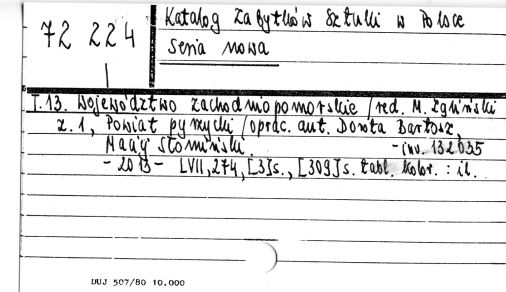 72 224
Katalog Zabytków Sztuki w Polsce
Seria nowa
T.13. Województwo zachodniopomorskie / red. M. Zgliński
z. 1, Powiat pyrzycki / oprac. aut. Dorota Bartosz,
Maciej Słomiński
- inv. 132035
- 2013 - LVII, 274, [3] s., [309] s. tabl. kolor. : il.
DUJ 507/80 10.000